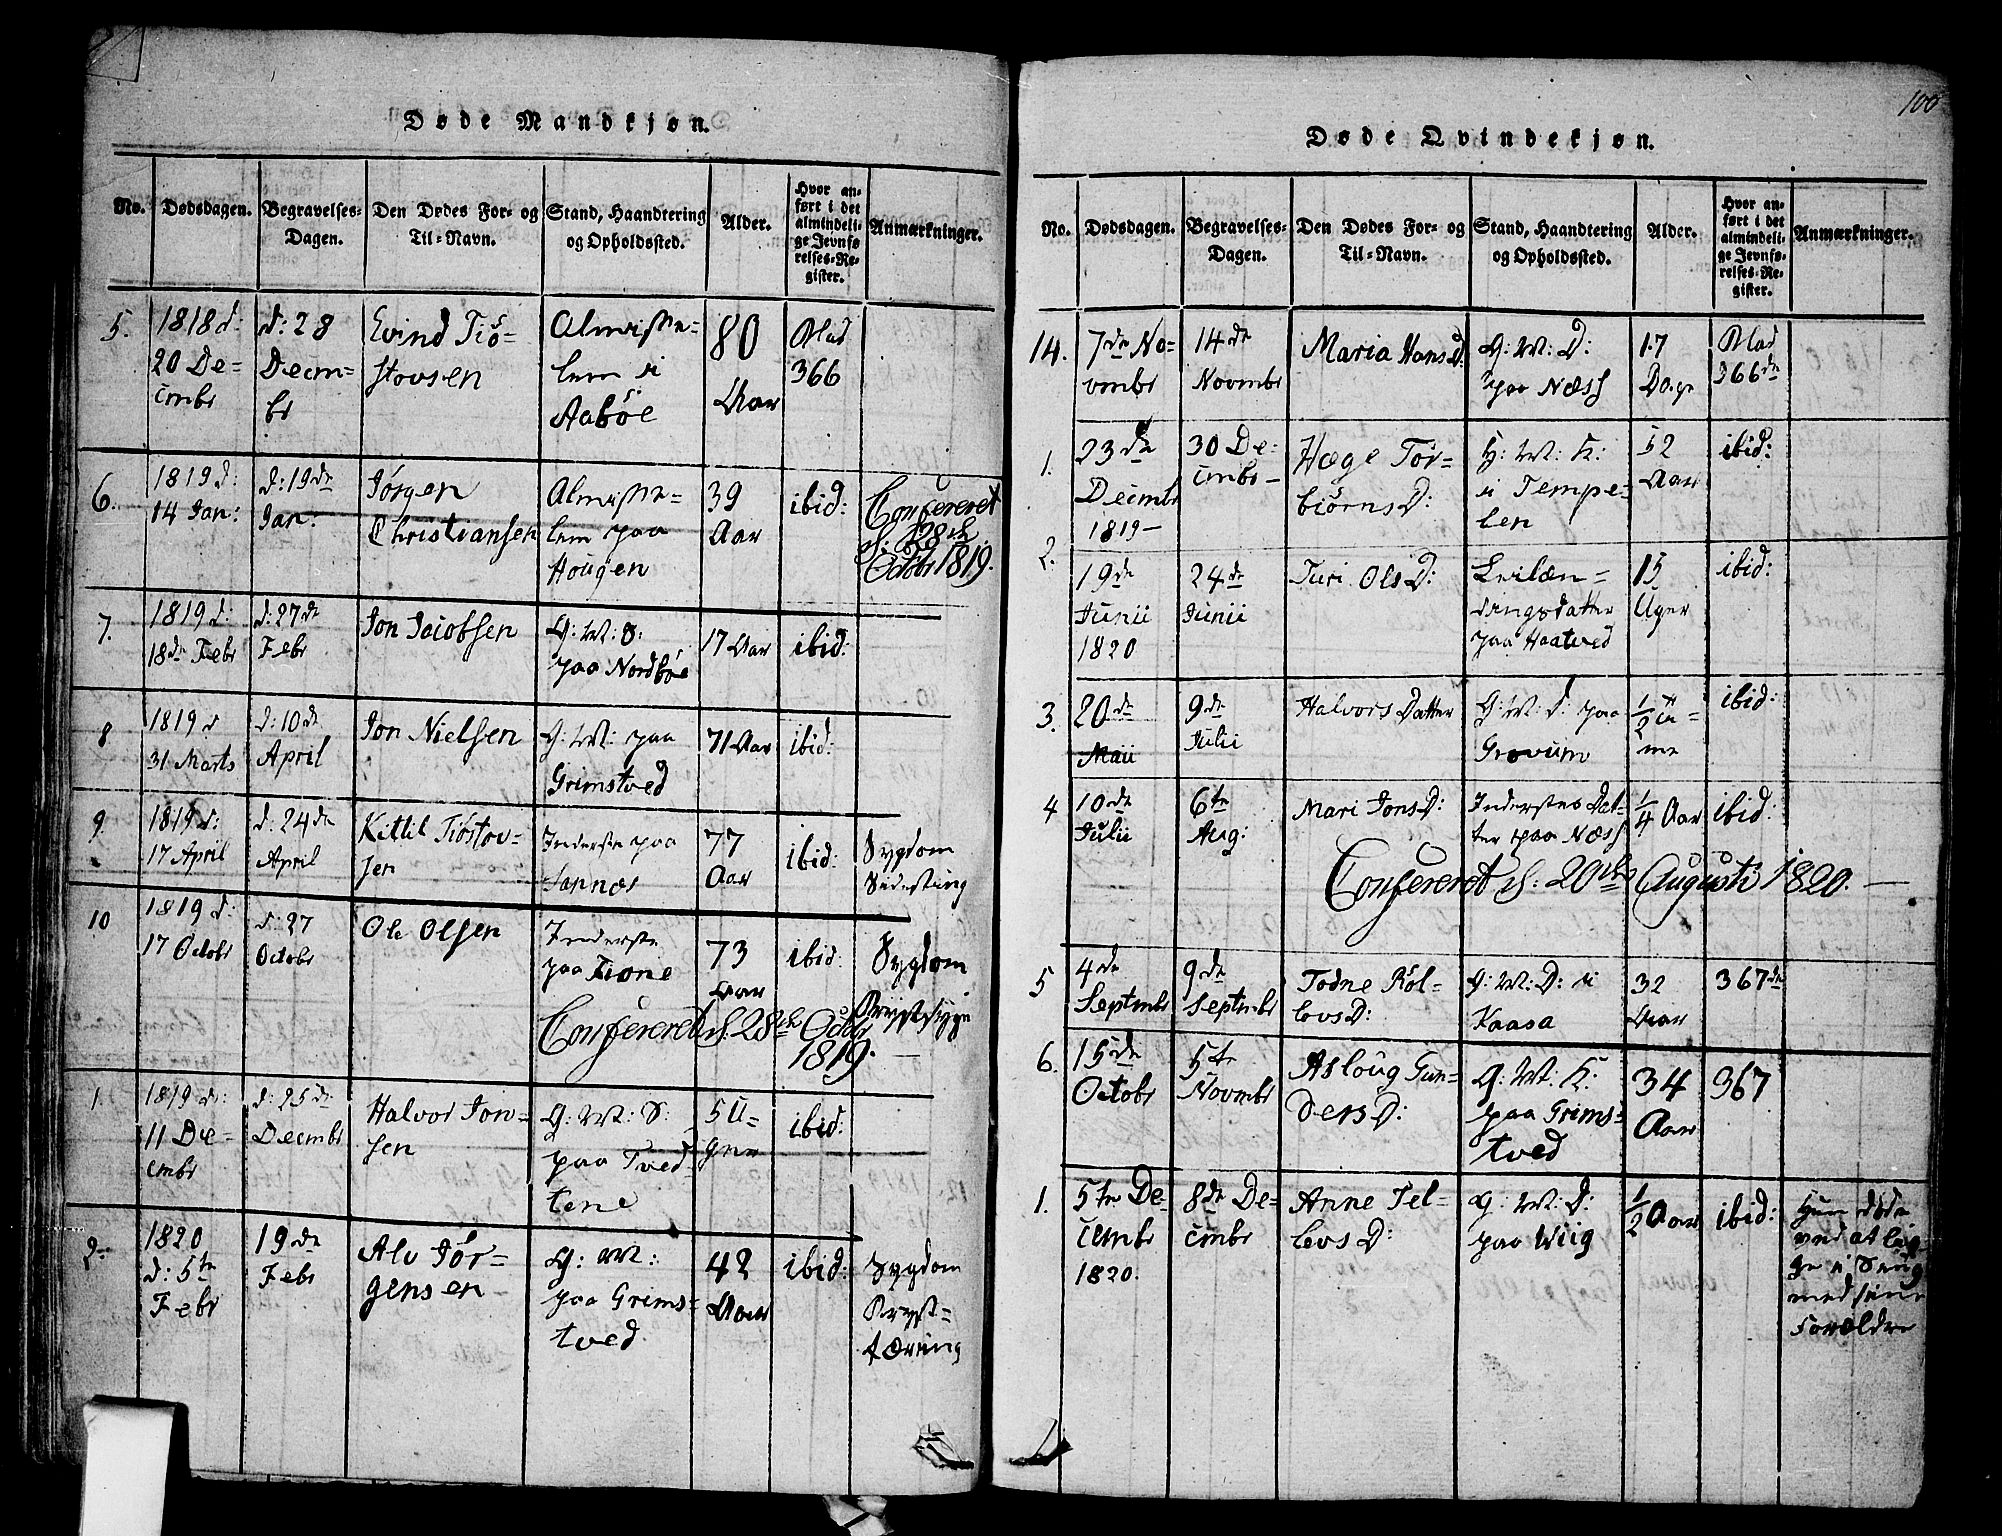 Døde Mandkjøn.
No.
Dødsdagen.
Begravelses-
Dagen.
Den Dødes For- og
Til-Navn.
Stand, Haandtering
og Opholdssted.
Alder.
Hvor an-
ført i det
almindeli-
ge Jevnfø
relses-Re-
gister.
Anmærkninger.
5.
1818 d:
20 De-
cmbr
d: 28
Decm-
br
Evind Tiø-
stovsen
Almisse-
lem i
Aabøe
80
Aar
Blad
366
6.
1819 d:
14 Jan:
d: 19de
Jan:
Jørgen
Christiansen
Almisse-
lem paa
Hougen
39
Aar
ibid:
Confereret
d. 28de
Octobr 1819.
7.
1819 d:
18de Febr
d: 27de
Febr
Jon Jacobsen
G: M: S:
paa Nordbøe
17 Aar
ibid:
8
1819 d
31 Marts
d: 10de
April
Jon Nielsen
G: M: paa
Grimstved
71 Aar
ibid:
9.
1819 d:
17 April
d: 24de
April
Kittil Tiøstov-
sen
Inderste paa
Sannæs
77
Aar
ibid:
Sygdom
Sidesting
10
1819 d:
17 Octobr
d: 27
Octobr
Ole Olsen
Inderste
paa Tione
73
Aar
ibid:
Sygdom
Brystsyge
Confereret d. 28de Octbr
1819.
1.
1819 d:
11 De-
cmbr
d: 25de
Decmbr
Halvor Jon-
sen
G: M: S:
paa Tved
tene
5 U-
ger
ibid:
2.
1820
d: 5te
Febr
19de
Febr
Alv Jør-
gensen
G: M:
paa Grims-
tved
42
Aar
ibid:
Sygdom
Bryst-
tæring
100
Døde Qvindekjøn.
No.
Dødsdagen.
Begravelses-
Dagen.
Den Dødes For- og
Til-Navn.
Stand, Haandtering
og Opholdssted.
Alder.
Hvor an-
ført i det
almindeli-
ge Jevnfø-
relses-Re-
gister.
Anmærkninger.
14.
7de No-
vmbr
14de
Novmbr
Maria HansD.
G: M: D:
paa Næss
17
Dage
Blad
366de
1.
23de
Decmbr
1819-
30 De-
cmbr-
Hæge Tor-
biørnsD:
G: M: K:
i Tempe-
len
52
Aar
ibid:
2.
19de
Junii
1820
24de
Junii
Turi OlsD:
Leilæn-
dingsdatter
paa Haatved
15
Uger
ibid:
3.
20de
Maii
9de
Julii
Halvors Datter
G: M: D: paa
Grovum
1/2 Ti-
me
ibid:
4
10de
Julii
6te
Aug:
Mari JonsD:
Inderstes Dat-
ter paa Næss
1/4 Aar
ibid:
Confereret d. 20de Augusti 1820.
5
4de
Septmbr
9de
Septmbr
Todne Røl-
levsD:
G: M: D: i
Kaasa
32
Aar
367de
6.
15de
Octobr
5te
Novmbr
Asloug Gun-
dersD:
G: M: K:
paa Grims-
tved
34
Aar
367
1.
5te De-
cembr
1820.
8de De-
cmbr
Anne Tel-
levsD:
G: M: D:
paa Wiig
1/2 Aar
ibid:
Hun døde
ved at lig-
ge i Seng
med sine
Forældre